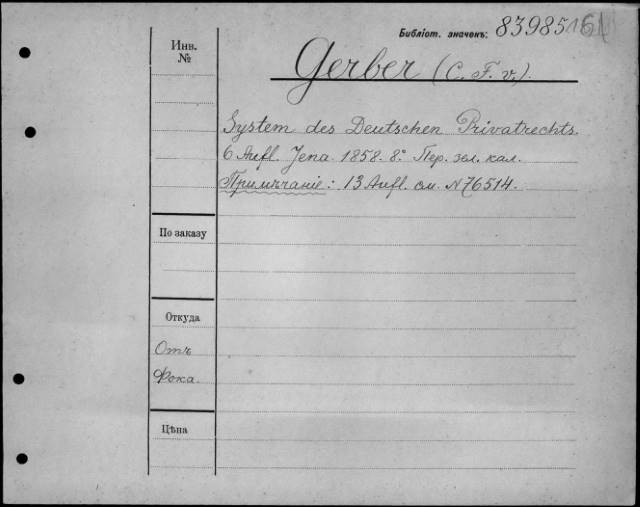 Библіот. значенъ: 83985
Инв.
№
Gerber (C. F. v.).
System des Deutschen Privatrechts.
6 Aufl. Jena. 1858. 8.° Пер. зел. кал.
Примѣчаніе: 13 Aufl. см. N76514.
По заказу
Откуда
Отъ
Фока.
Цѣна